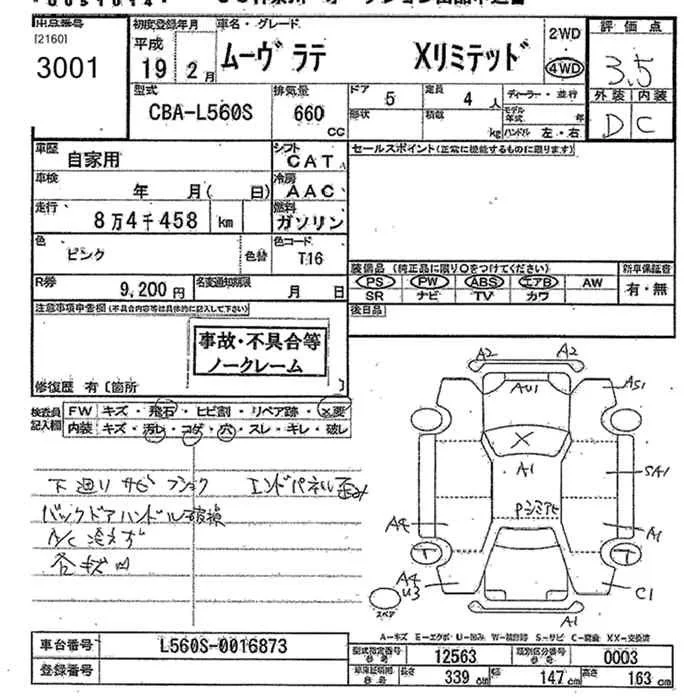 出品番号 初度登録年月 車名・グレード 2WD 評価点
[2160] 平成 ムーヴ ラテ Xリミテッド 4WD 3.5
3001 19 年 2 月
型式 排気量 ドア 5 定員 4 人 ディーラー・並行 外装 内装
CBA-L560S 660 CC 形状 積載 kg モデル年式 年 ハンドル 左・右 D C
車歴 自家用 シフト CAT セールスポイント(正常に機能するものに限ります)
車検 年 月( 日) 冷房 AAC
走行 8万4千458 km 燃料 ガソリン
色 ピンク 色替 色コード T16
装備品 (純正品に限り○をつけてください) 新車保証書
R券 9,200円 名変通知期限 月 日 PS PW ABS エアB AW 有・無
SR ナビ TV カワ
注意事項申告欄(不具合内容等は具体的に記入して下さい) 後日品
事故・不具合等
ノークレーム
修復歴 有〔箇所 〕
検査員記入欄 FW キズ・飛石・ヒビ割・リペア跡・×要
内装 キズ・汚レ・コゲ・穴・スレ・キレ・破レ
下廻りサビ エンドパネル歪み
バックドアハンドル破損
A/C冷えず
各キズ凹
A2 A2
AU1 AS1
X
A1 SA1
A4 A1
T T
A4
U3 C1
スペア A1
A-キズ E-エクボ U-凹み S-サビ XX-交換済
車台番号 L560S-0016873 型式指定番号 12563 類別区分番号 0003
登録番号 長さ 339 cm 幅 147 cm 高さ 163 cm